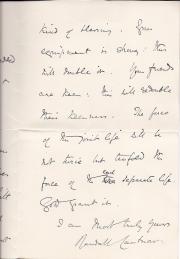 kind of blessing. Your
equipment is strong: this
will double it. Your friends
are keen: this will redouble
their keenness. The force
of the joint life will be
not twice but tenfold the
force of the each separate life.
God grant it.
I am Most truly yours
Randall Cantuar: